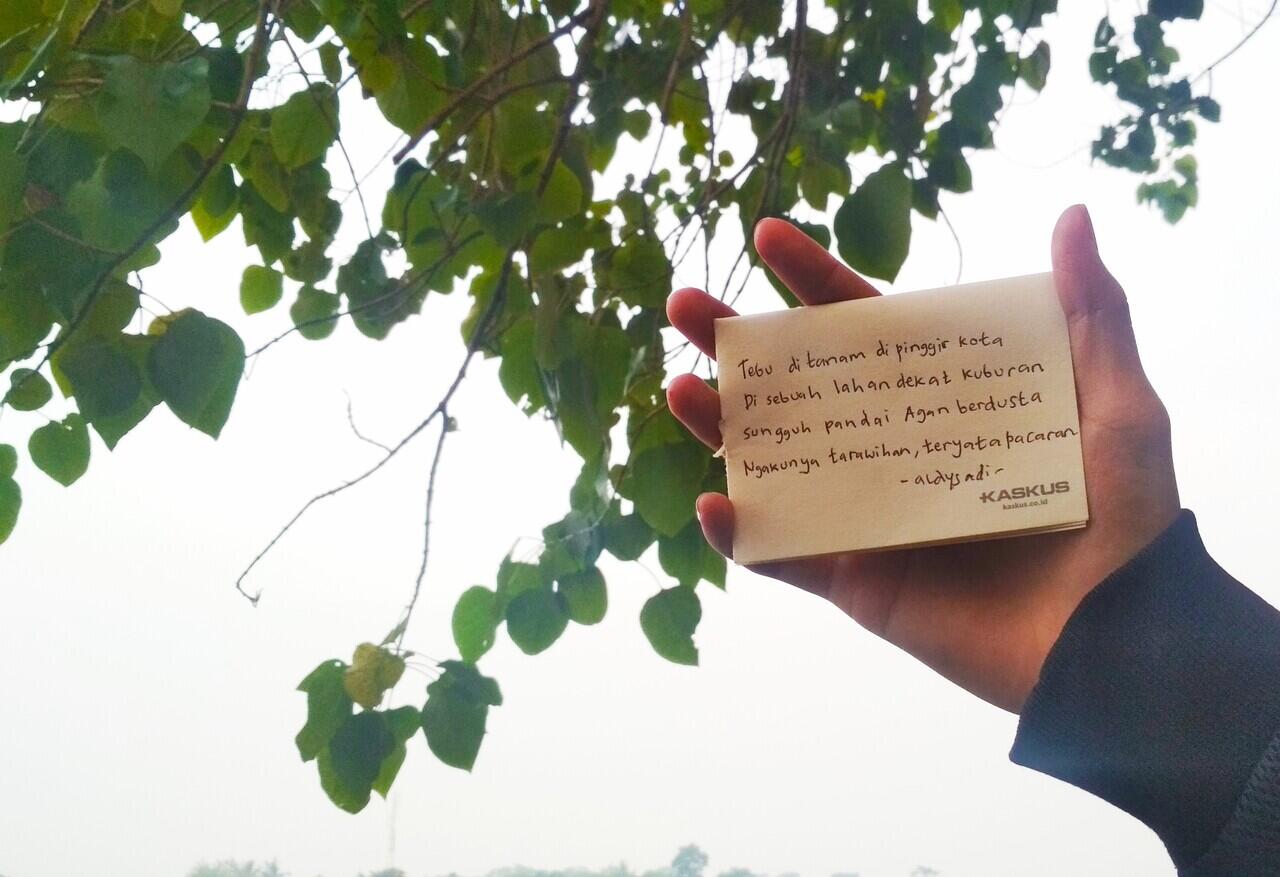 Tebu di tanam di pinggir kota
Di sebuah lahan dekat kuburan
sungguh pandai Agan berdusta
Ngakunya tarawihan, teryata pacaran
-aldysadi-
KASKUS
kaskus.co.id